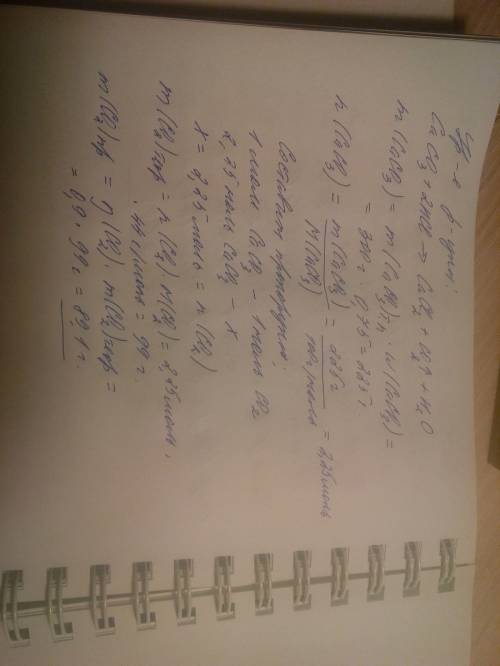 Ур-е р-ции:
CaCO₃ + 2HCl → CaCl₂ + CO₂↑ + H₂O
m(CaCO₃) = m(CaCO₃)т.н · ω(CaCO₃) =
= 300г · 0,75 = 225г.
n(CaCO₃) = m(CaCO₃) / M(CaCO₃) = 225г / 100г/моль = 2,25моль
Составим пропорцию:
1 моль CaCO₃ – 1 моль CO₂
2,25 моль CaCO₃ – x
x = 2,25 моль = n(CO₂)
m(CO₂)теор = n(CO₂) · M(CO₂) = 2,25 моль ·
· 44г/моль = 99г.
m(CO₂)пр = η(CO₂) · m(CO₂)теор =
= 0,9 · 99г = 89,1г.